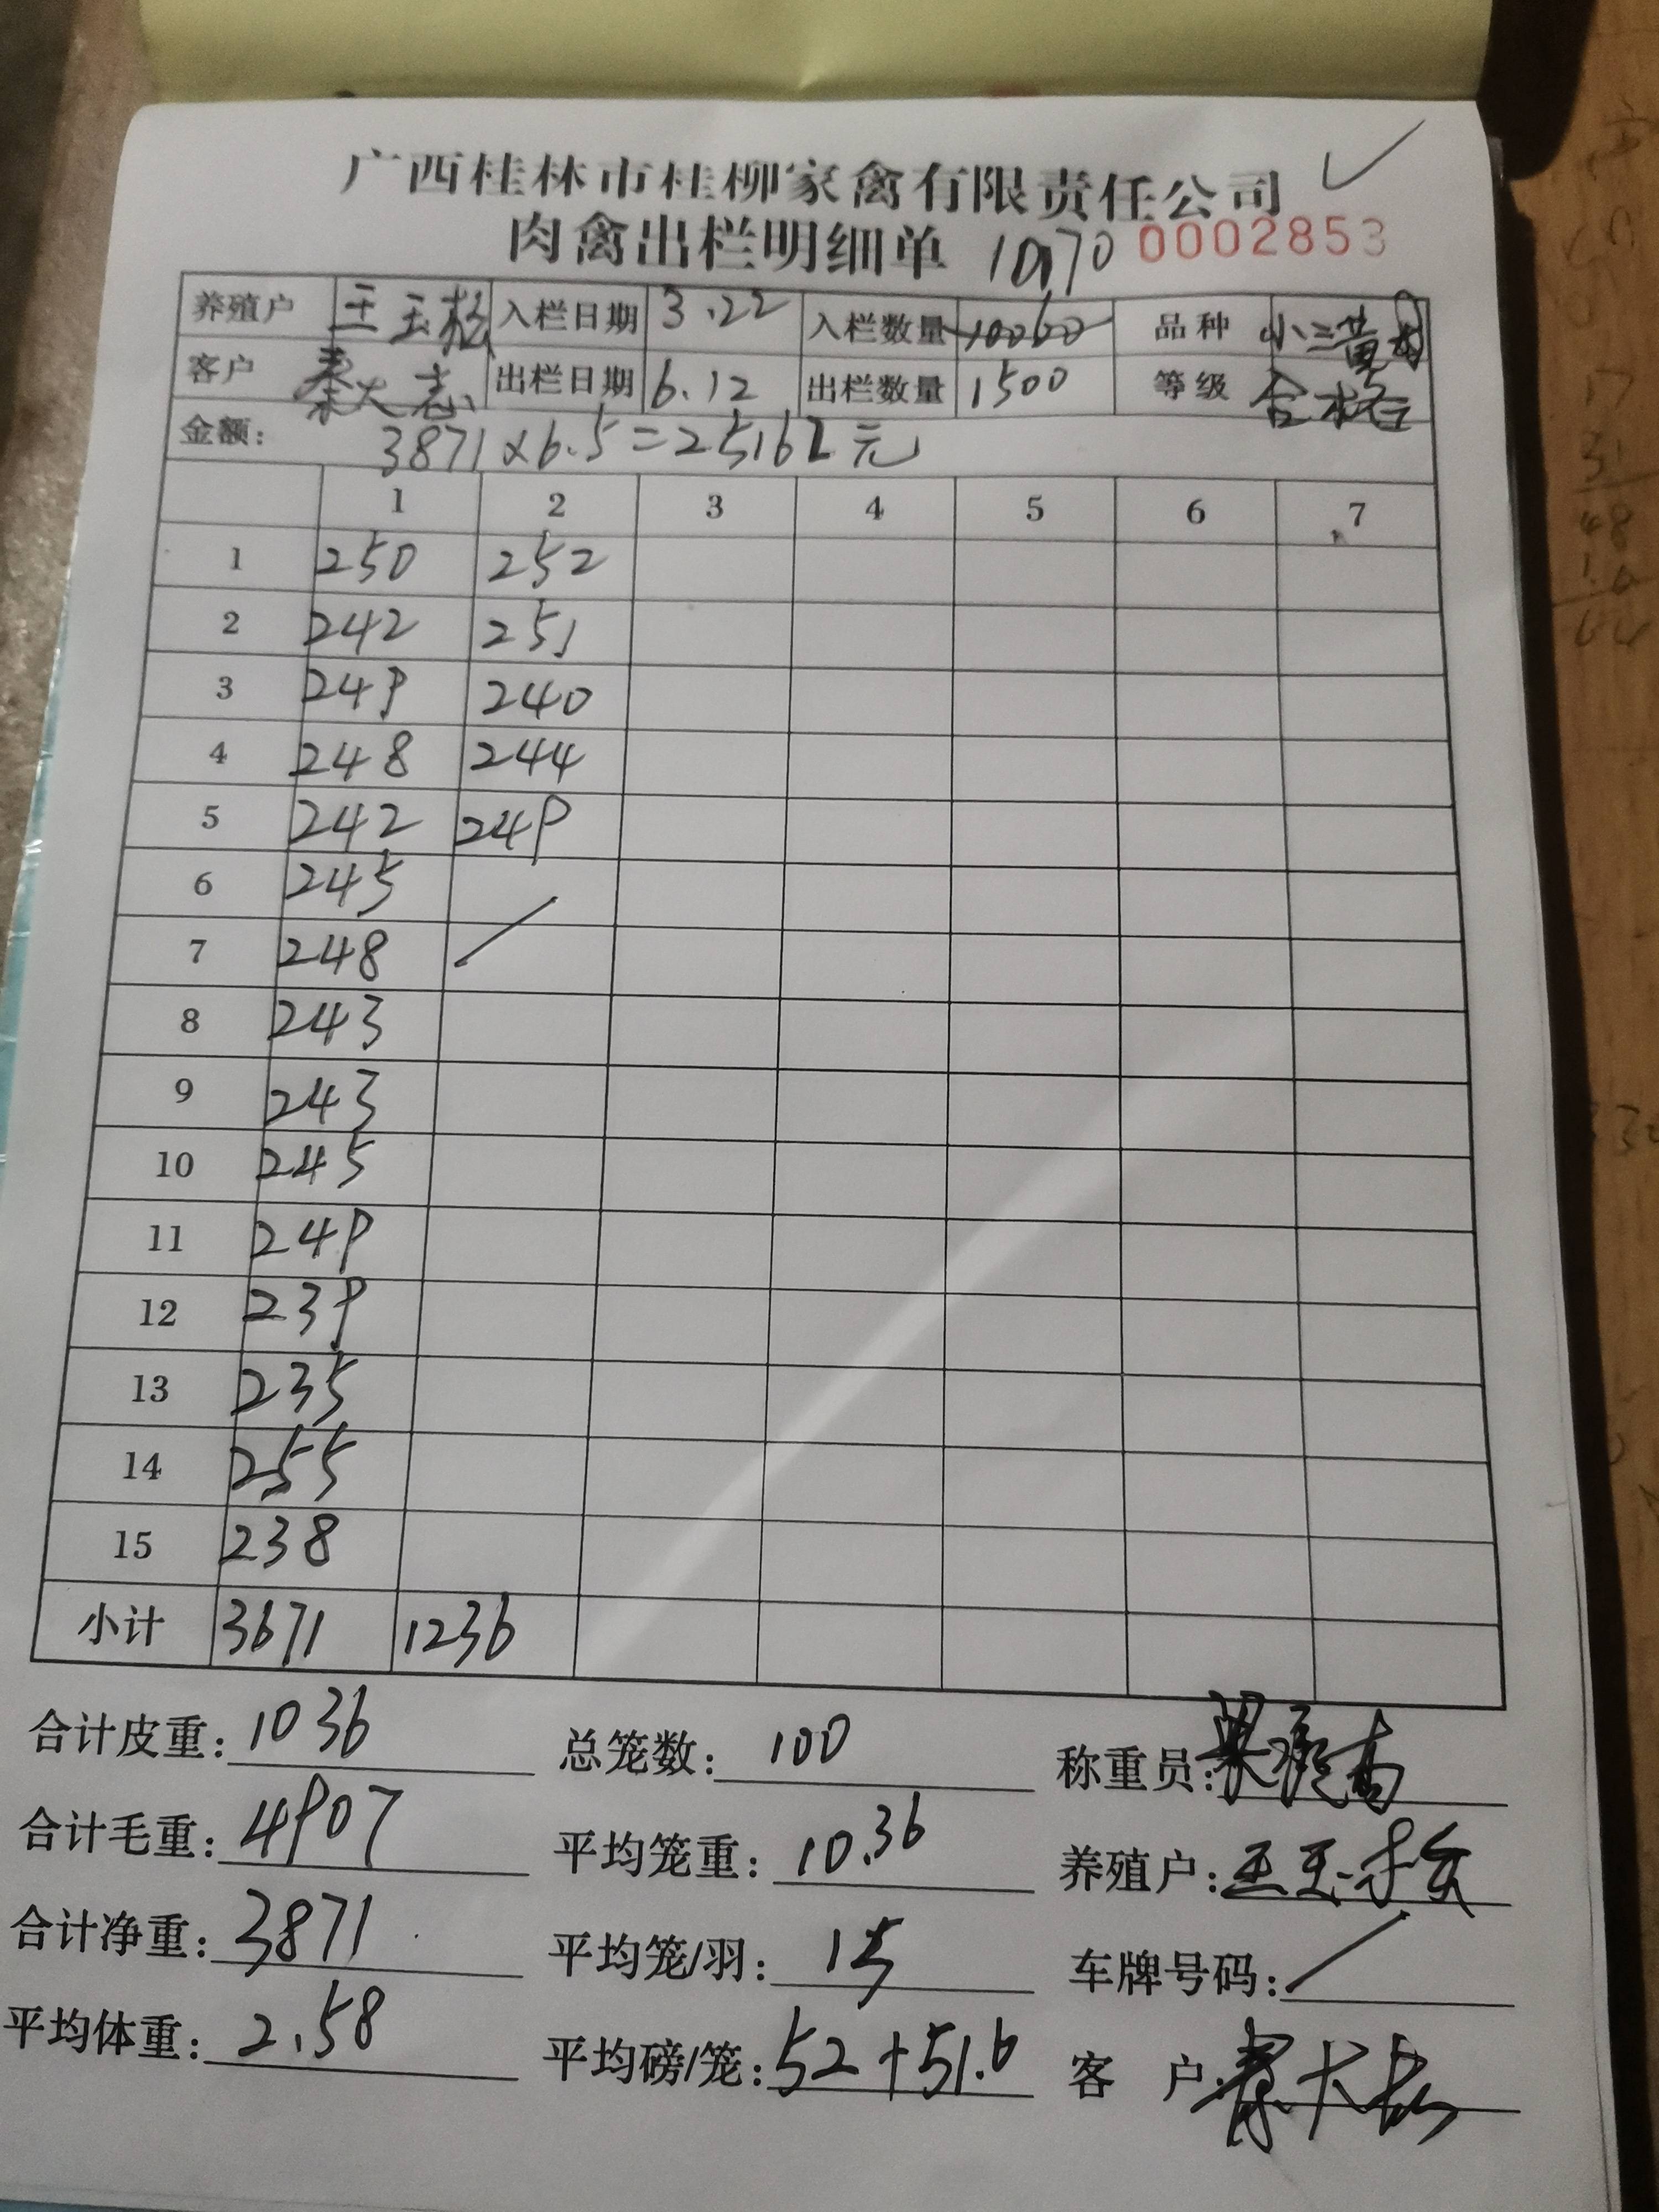 广西桂林市桂柳家禽有限责任公司
肉禽出栏明细单 10170 0002853
养殖户 王玉松 入栏日期 3.22 入栏数量 10060 品种 小三黄母
客户 秦大志 出栏日期 6.12 出栏数量 1500 等级 合格
金额: 3871×6.5=25162元
1 2 3 4 5 6 7
1 250 252
2 242 251
3 249 240
4 248 244
5 242 249
6 245
7 248
8 243
9 243
10 245
11 249
12 239
13 235
14 255
15 238
小计 3671 1236
合计皮重: 1036 总笼数: 100 称重员:
合计毛重: 4907 平均笼重: 10.36 养殖户: 王玉松
合计净重: 3871 平均笼/羽: 15 车牌号码: /
平均体重: 2.58 平均磅/笼: 52+51.6 客户: 秦大志